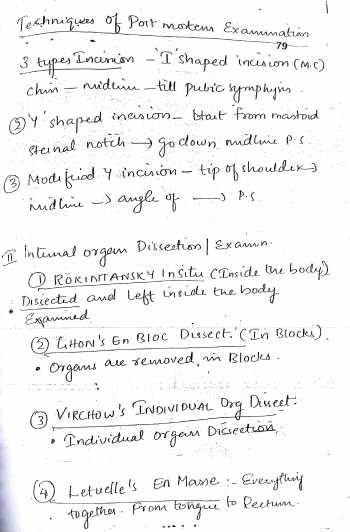 Techniques of Post mortem Examination
79
3 types Incision - 'I' shaped incision (M.C)
chin - midline - till pubic symphysis.
② Y' shaped incision - start from mastoid
sternal notch → go down, midline P.S.
③ Modified Y incision - tip of shoulder →
midline → angle of → P.S
II Internal organ Dissection | Examn.
① ROKINTANSKY INSitu (Inside the body)
• Disected and left inside the body
Examined
② GHON'S En Bloc Dissect. (In Blocks)
• Organs are removed in Blocks.
③ VIRCHOW'S INDIVIDUAL Org Dissect:
• Individual organ Dissection,
④ Letuelle's En Masse :- Everything
together. From tongue to Rectum.